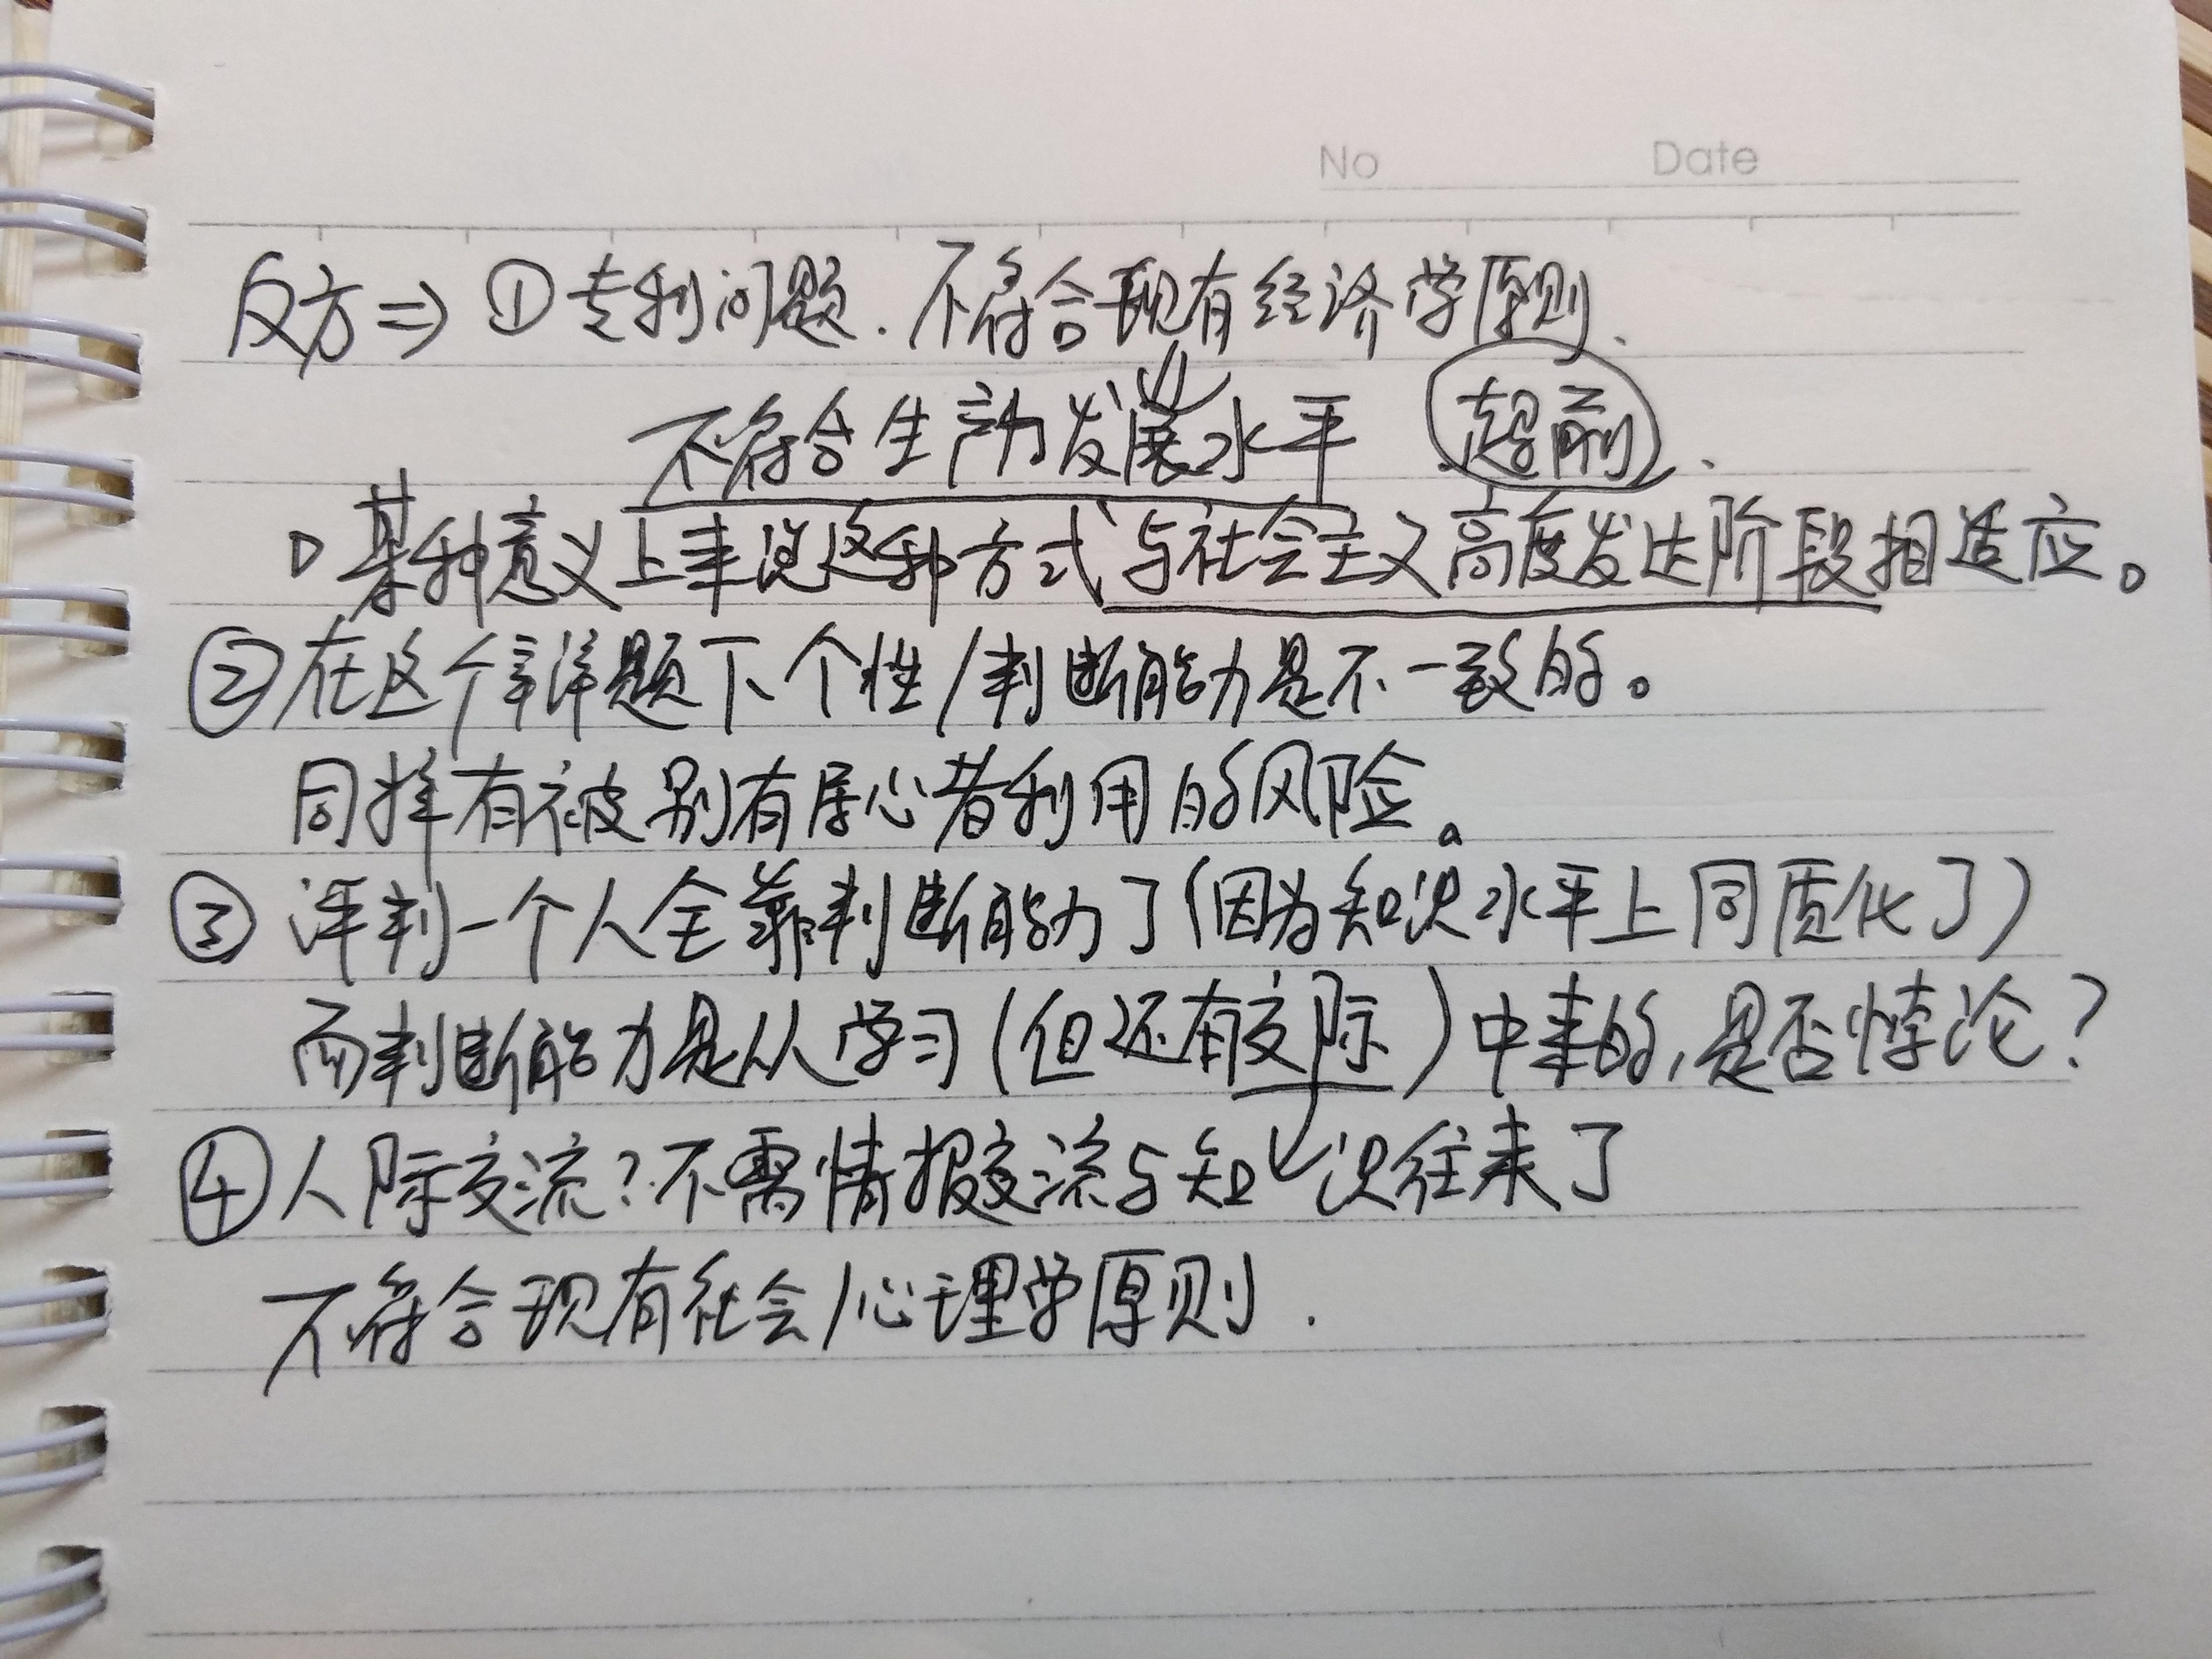 No Date
反方⇒ ①专利问题.不符合现有经济学原则.
不符合生产力发展水平 超前.
某种意义上来说这种方式与社会主义高度发达阶段相适应。
②在这个辩题下个性/判断能力是不一致的。
同样有被别有居心者利用的风险。
③ 评判一个人全靠判断能力了(因为知识水平上同质化了)
而判断能力是从学习(但还有交际)中来的,是否悖论?
④人际交流?不需情报交流与知识往来了
不符合现有社会/心理学原则.